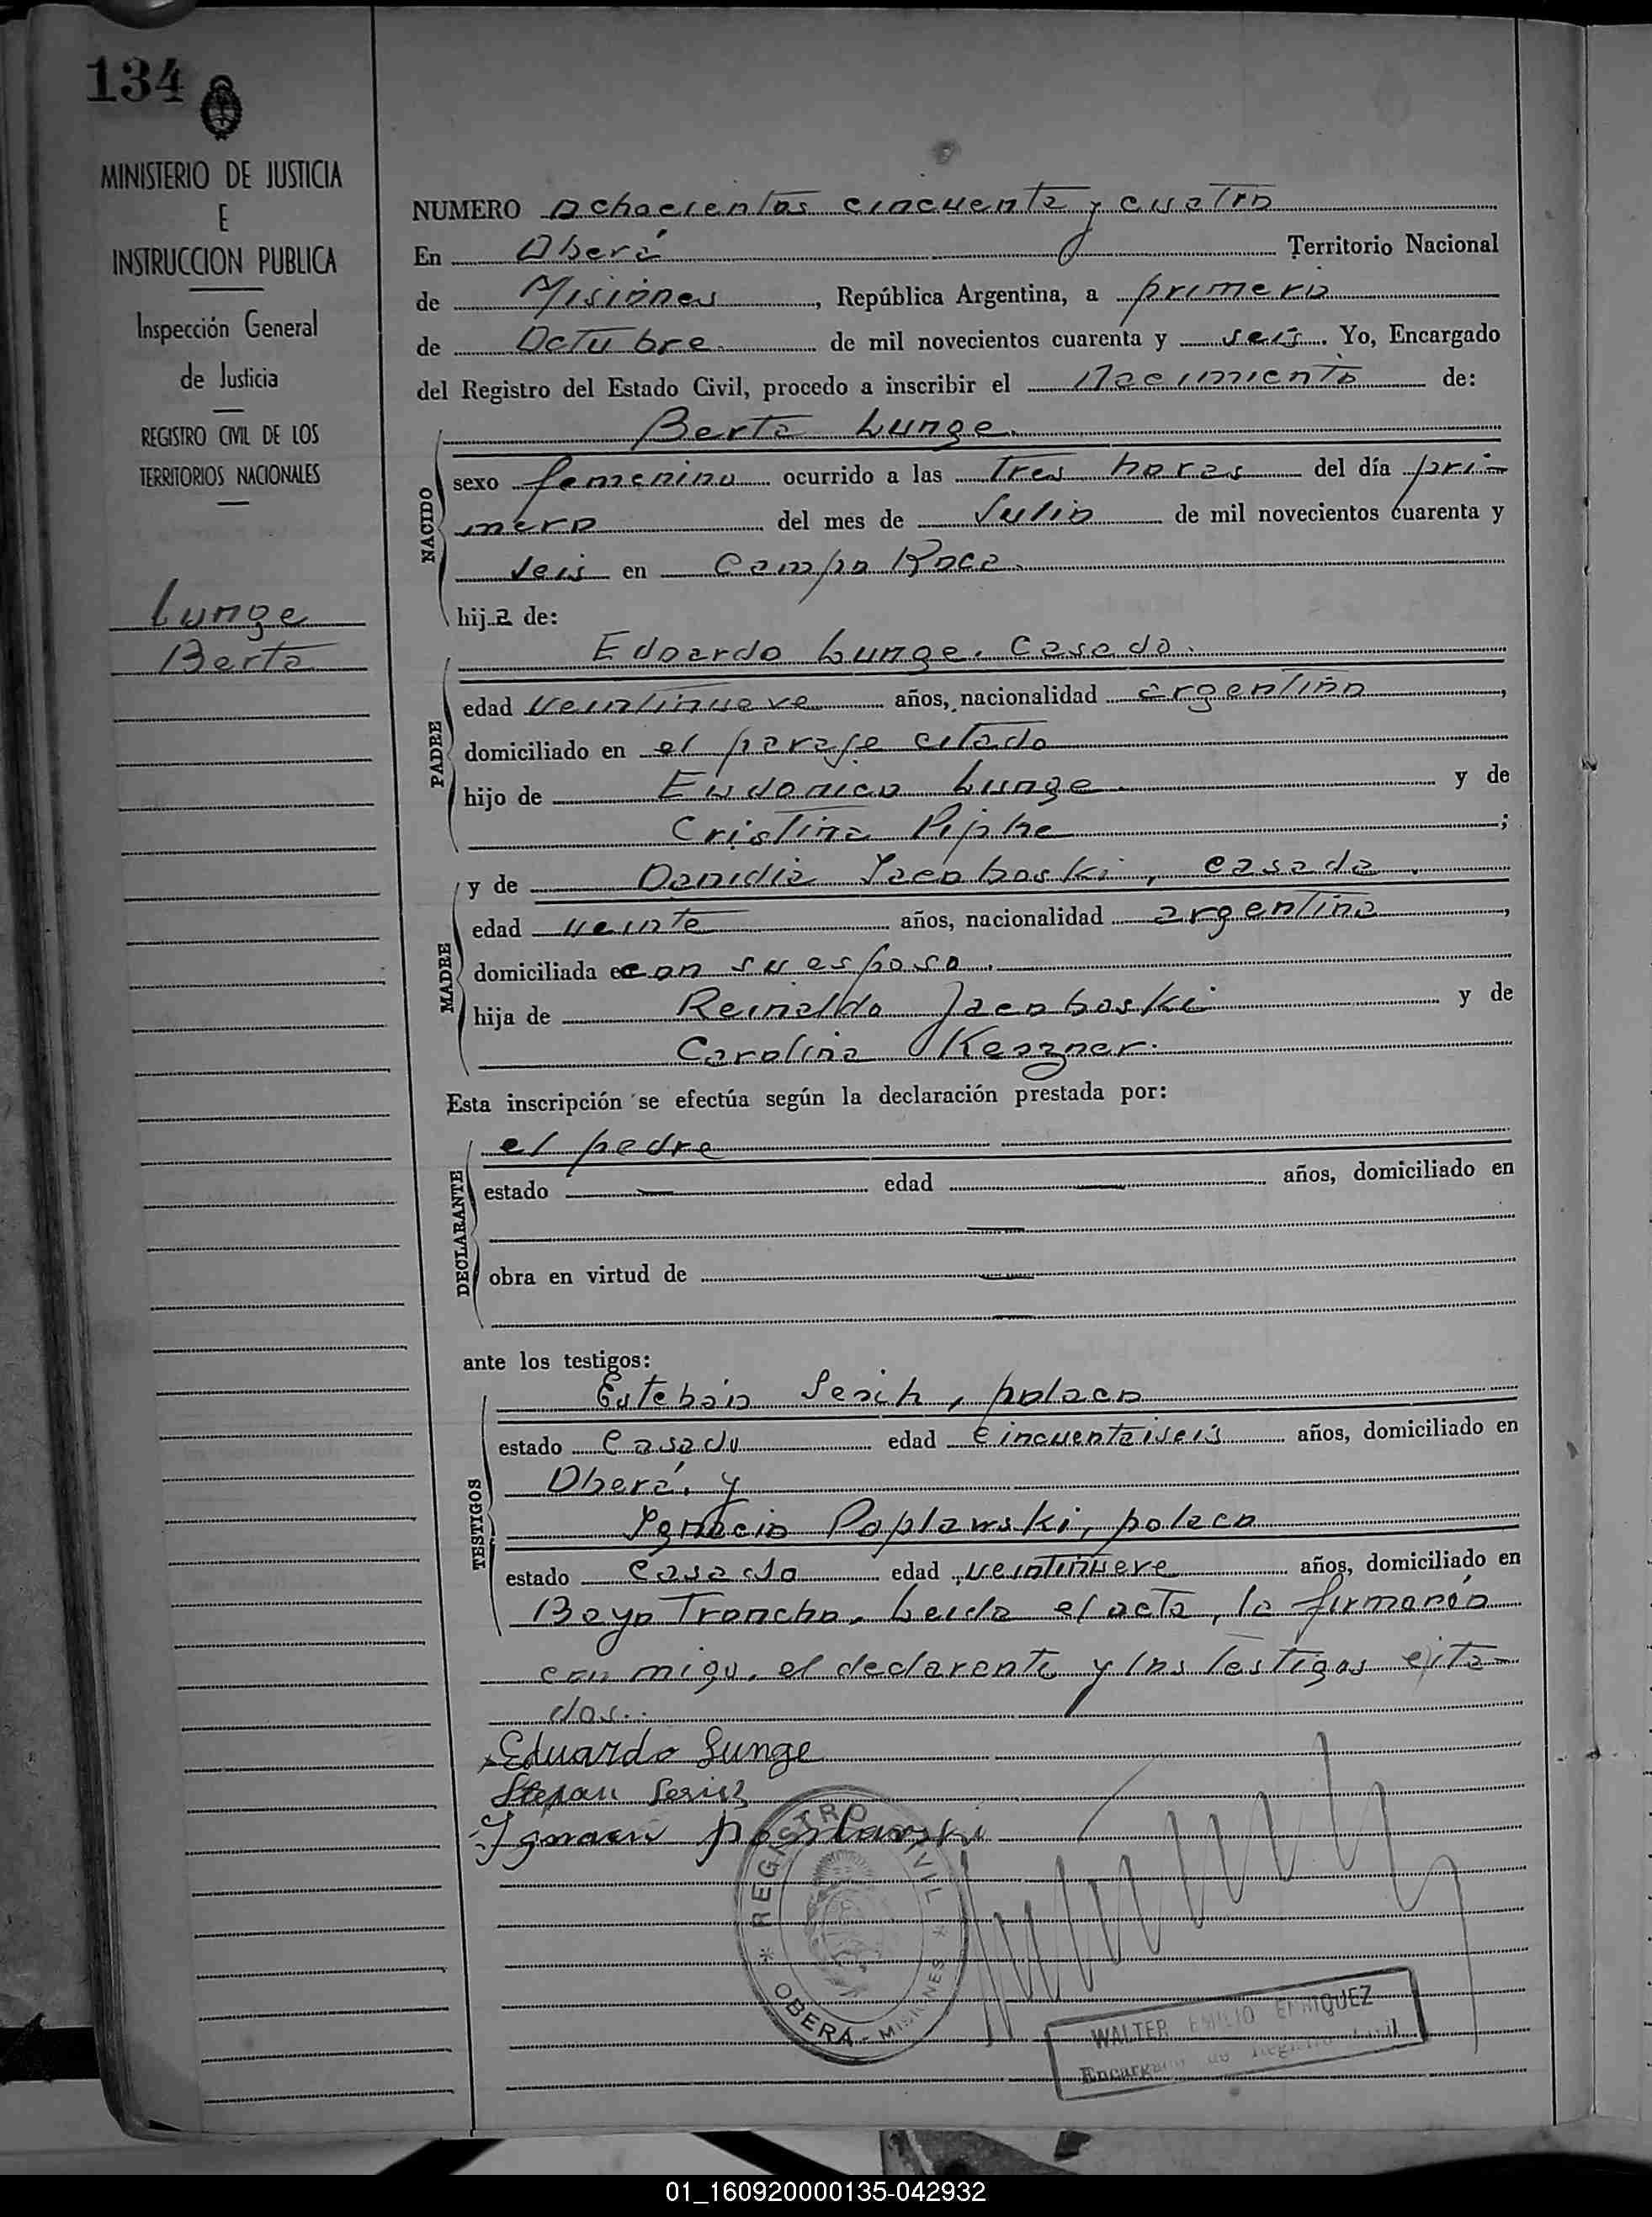 134
MINISTERIO DE JUSTICIA
E
INSTRUCCION PUBLICA
Inspección General
de Justicia
REGISTRO CIVIL DE LOS
TERRITORIOS NACIONALES
Lunge
Berta
NUMERO Ochocientos cincuenta y cuatro
En Oberá Territorio Nacional
de Misiones, República Argentina, a primero
de Octubre de mil novecientos cuarenta y seis. Yo, Encargado
del Registro del Estado Civil, procedo a inscribir el Nacimiento de:
NACIDO
Berta Lunge.
sexo femenino ocurrido a las tres horas del día pri-
mero del mes de Julio de mil novecientos cuarenta y
seis en Campo Roca.
hija de:
PADRE
Edoardo Lunge. Casado.
edad veintinueve años, nacionalidad argentino,
domiciliado en el paraje citado
hijo de Lunge. y de
Cristina Pipke;
MADRE
y de Danidia Jacoboski, casada.
edad veinte años, nacionalidad argentina,
domiciliada con su esposo.
hija de Reinaldo Jacoboski y de
Carolina
Esta inscripción se efectúa según la declaración prestada por:
DECLARANTE
el padre
estado — edad — años, domiciliado en
—
obra en virtud de —
—
ante los testigos:
TESTIGOS
Esteban polaco
estado Casado edad cincuentaiseis años, domiciliado en
Oberá, y
Ignacio Poplawski, polaco
estado Casado edad veintinueve años, domiciliado en
Bayo Troncho. Leida el acta, la firmarón
con migo, el declarante y los testigos cita-
dos.
Eduardo Lunge
Stepan
REGISTRO CIVIL
* OBERÁ - MISIONES *
WALTER EMILIO ENRIQUEZ
Encargado de Registro Civil
01_160920000135-042932